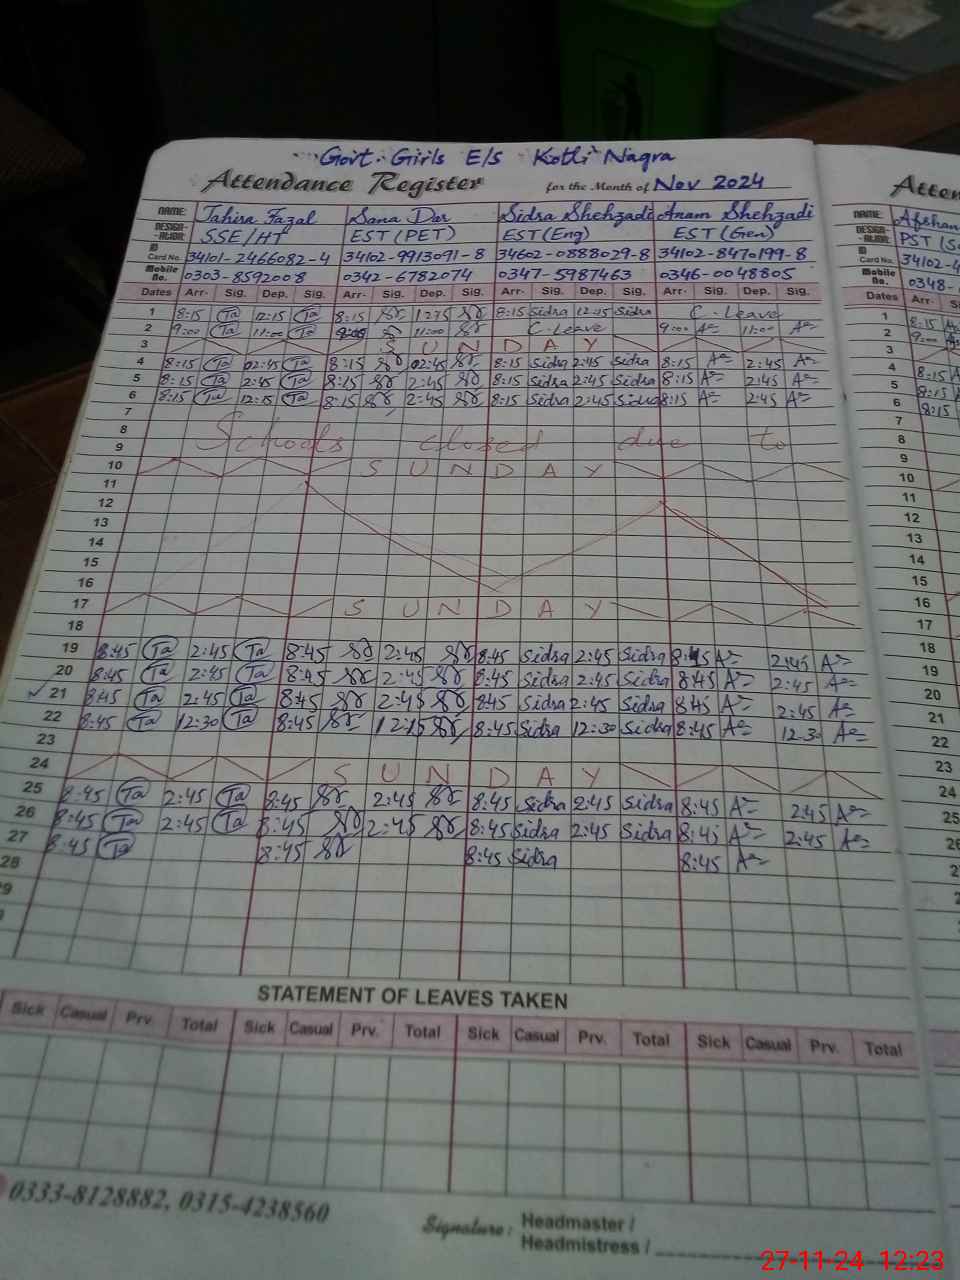 Govt. Girls E/S Kotli Nagra
Attendance Register for the Month of Nov 2024 Atten
NAME: Tahira Fazal Sana Dar Sidra Shehzadi Anam Shehzadi NAME: Afshan
DESIGN- -ATION: SSE/HT EST (PET) EST (Eng) EST (Gen) DESIGN- -ATION: PST (S
ID Card No. 34101-2466082-4 34102-9913091-8 34602-0888029-8 34102-8470199-8 ID Card No. 34102-4
Mobile No. 0303-8592008 0342-6782074 0347-5987463 0346-0048805 Mobile No. 0348-
Dates Arr- Sig. Dep. Sig. Arr- Sig. Dep. Sig. Arr- Sig. Dep. Sig. Arr- Sig. Dep. Sig. Dates Arr- S
1 8:15 Ta 12:15 Ta 8:15 12:15 8:15 Sidra 12:15 Sidra C-Leave 1 8:15
2 9:00 Ta 11:00 Ta 9:00 11:00 C-Leave 9:00 A 11:00 A 2 9:00
3 SUNDAY 3
4 8:15 Ta 02:45 Ta 8:15 02:45 8:15 Sidra 2:45 Sidra 8:15 A 2:45 A 4 8:15
5 8:15 Ta 2:45 Ta 8:15 2:45 8:15 Sidra 2:45 Sidra 8:15 A 2:45 A 5 8:15
6 8:15 Ta 12:15 Ta 8:15 2:45 8:15 Sidra 2:45 Sidra 8:15 A 2:45 A 6 8:15
7 7
8 Schools closed due to 8
9 9
10 SUNDAY 10
11 11
12 12
13 13
14 14
15 15
16 16
17 SUNDAY 17
18 18
19 8:45 Ta 2:45 Ta 8:45 2:45 8:45 Sidra 2:45 Sidra 8:45 A 2:45 A 19
20 8:45 Ta 2:45 Ta 8:45 2:45 8:45 Sidra 2:45 Sidra 8:45 A 2:45 A 20
21 8:45 Ta 2:45 Ta 8:45 2:45 8:45 Sidra 2:45 Sidra 8:45 A 2:45 A 21
22 8:45 Ta 12:30 Ta 8:45 12:15 8:45 Sidra 12:30 Sidra 8:45 A 12:30 A 22
23 23
24 SUNDAY 24
25 8:45 Ta 2:45 Ta 8:45 2:45 8:45 Sidra 2:45 Sidra 8:45 A 2:45 A 25
26 8:45 Ta 2:45 Ta 8:45 2:45 8:45 Sidra 2:45 Sidra 8:45 A 2:45 A 26
27 8:45 Ta 8:45 8:45 Sidra 8:45 A
28
STATEMENT OF LEAVES TAKEN
Sick Casual Prv. Total Sick Casual Prv. Total Sick Casual Prv. Total Sick Casual Prv. Total
0333-8128882, 0315-4238560
Signature: Headmaster /
Headmistress /
27-11-24 12:23